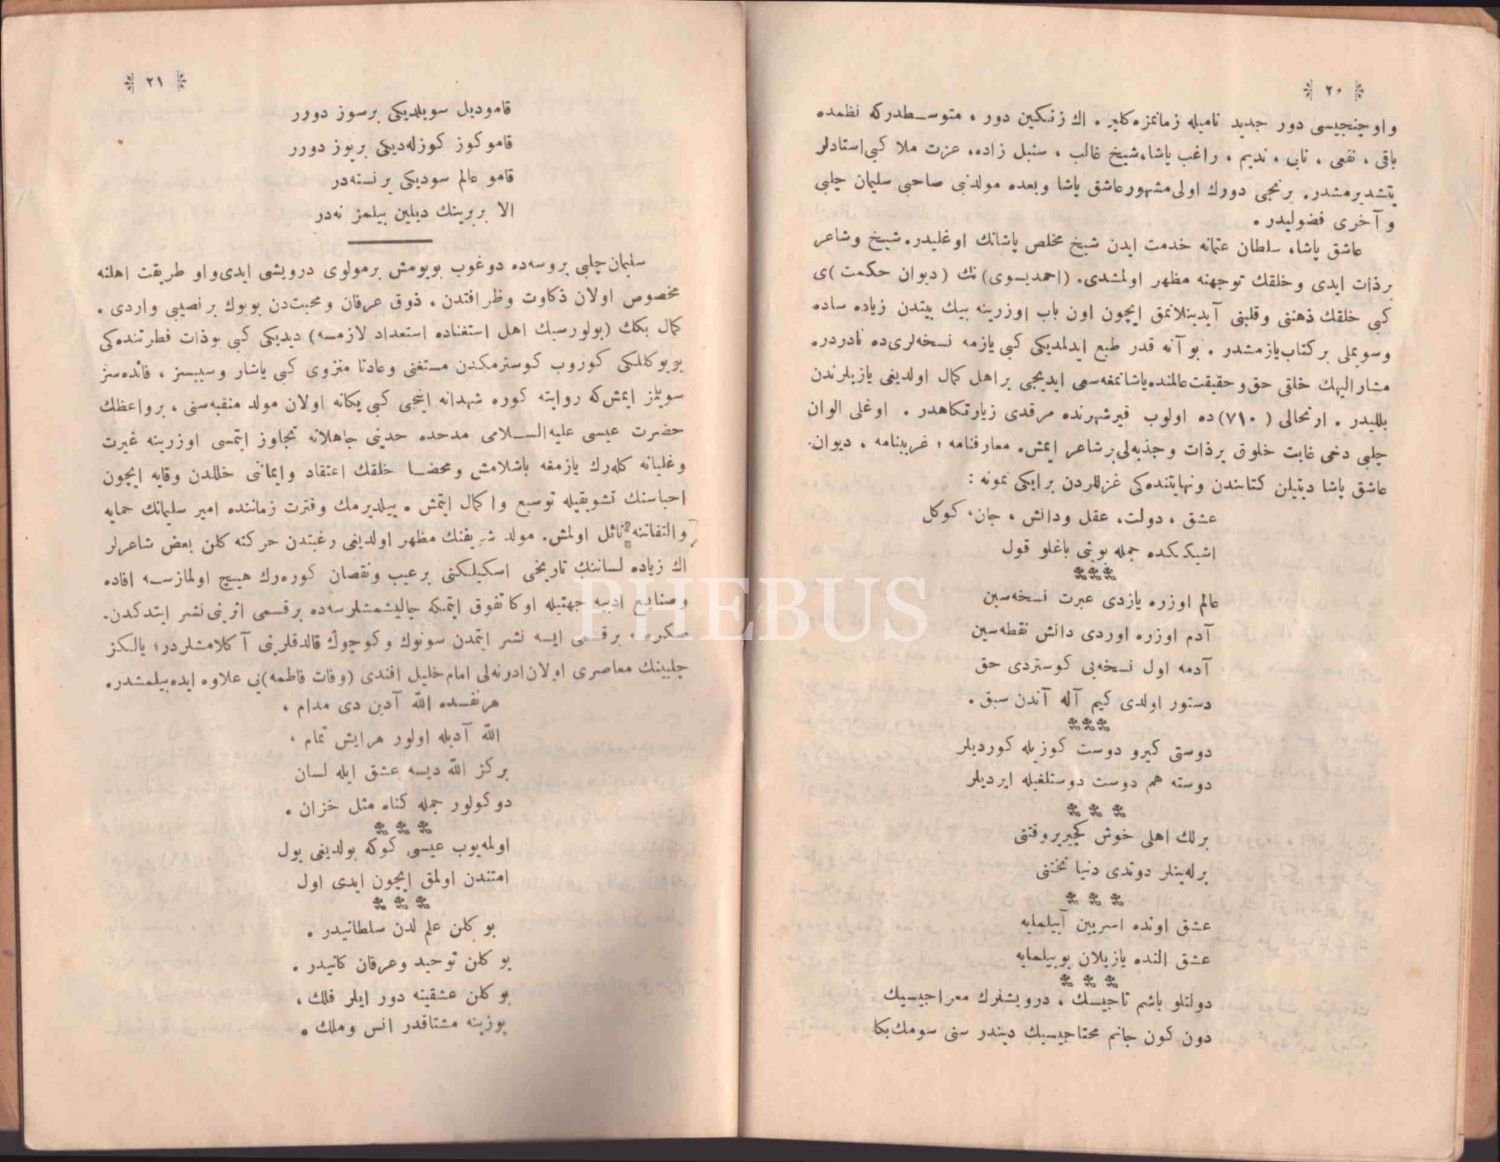 ٢٠
واوچنجیسی دور جدید نامیله زمانمزه کلیر. اك زنكین دور، متوسطدركه نظمده
باقی، نفعی، نابی، ندیم، راغب پاشا، شیخ غالب، سنبل زاده، عزت ملا كبی استادلر
یتشدیرمشدر. برنجی دورك اولی مشهور عاشق پاشا وبعده مولدنبی صاحبی سلیمان چلبی
و آخری فضولیدر.
عاشق پاشا، سلطان عثمانه خدمت ایدن شیخ مخلص پاشانك اوغلیدر. شیخ وشاعر
برذات ایدی وخلقك توجهنه مظهر اولمشدی. (احمدیسوی) نك (دیوان حكمت)ی
كبی خلقك ذهننی وقلبنی آیدینلاتمق ایچون اون باب اوزرینه بیك بیتدن زیاده ساده
وسویملی بركتاب یازمشدر. بو آنه قدر طبع ایدلمدیكی كبی یازمه نسخه‌لری‌ده نادردر.
مشارالیهك خلقی حق وحقیقت عالمنده یاشاتمغه سعی ایدیجی براهل كمال اولدیغی یازیلرندن
بللیدر. ارتحالی (٧١٠)ده اولوب قیرشهرنده مرقدی زیارتكاهدر. اوغلی الوان
چلبی دخی غایت خلوق برذات وجذبه‌لی برشاعر ایمش. معارفنامه؛ غریبنامه، دیوان.
عاشق پاشا دینیلن كتابندن ونهایتنده‌كی غزللردن برایكی نمونه:
عشق، دولت، عقل ودانش، جان، كوكل
اشیككده جمله بوینی باغلو قول
عالم اوزره یازدی عبرت نسخه‌سین
آدم اوزره اوردی دانش نقطه‌سین
آدمه اول نسخه‌یی كوستردی حق
دستور اولدی كیم آله آندن سبق.
دوستی كیرو دوست كوزیله كوردیلر
دوسته هم دوست دوستلغیله ایردیلر
برلك اهلی خوش كچیریروقتنی
برله‌ینلر دوندی دنیا تختنی
عشق اونده اسریین آییلمایه
عشق النده یازیلان بوییلمایه
دولتلو باشم تاجیسك، درویشلرك معراجیسیك
دون كون جانم محتاجیسیك دیندر سنی سومك بكا
٢١
قامودیل سویلدیكی برسوز دورر
قاموكوز كوزله‌دیكی بریوز دورر
قامو عالم سودیكی برنسنه‌در
الا بربرینك دیلین بیلمز نه‌در
سلیمان چلبی بروسه‌ده دوغوب بویومش برمولوی درویشی ایدی‌واو طریقت اهلنه
مخصوص اولان ذكاوت وظرافتدن، ذوق عرفان ومحبت‌دن بویوك برنصیبی واردی.
كمال بكك (بولورسك اهل استغناده استعداد لازمسه) دیدیكی كبی بوذات فطرتنده‌كی
بویوكلكی كوروب كوسترمكدن مستغنی وعادتا منزوی كبی یاشار وسببسز، فائده‌سز
سویلمز ایمش‌كه روایته كوره شهدانه اینجی كبی یكانه اولان مولد منقبه‌سنی، برواعظك
حضرت عیسی علیه‌السلامی مدحده حدینی جاهلانه تجاوز ایتمسی اوزرینه غیرت
وغلیانه كله‌رك یازمغه باشلامش ومحضا خلقك اعتقاد وایماننی خللدن وقایه ایچون
احباسنك تشویقیله توسیع واكمال ایتمش. ییلدیرمك وفترت زماننده امیر سلیمانك حمایه
والتفاتنه نائل اولمش. مولد شریفنك مظهر اولدیغی رغبتدن حركته كلن بعض شاعرلر
اك زیاده لساننك تاریخی اسكیلكنی برعیب ونقصان كوره‌رك هیچ اولمازسه افاده
وصنایع ادبیه جهتیله اوكا تفوق ایتمكه چالیشمشلرسه‌ده برقسمی اثرنی نشر ایتدكدن
صكره، برقسمی ایسه نشر ایتمدن سونوك وكوچوك قالدقلرینی آكلامشلردر؛ یالكز
چلبینك معاصری اولان ادرنه‌لی امام خلیل افندی (وفات فاطمه)یی علاوه ایده‌بیلمشدر.
هرنفسده الله آدین دی مدام،
الله آدیله اولور هرایش تمام،
بركز الله دیسه عشق ایله لسان
دوكولور جمله كناه مثل خزان.
اولمه‌یوب عیسی كوكه بولدیغی یول
امتندن اولمق ایچون ایدی اول
بو كلن علم لدن سلطانیدر.
بو كلن توحید وعرفان كانیدر.
بو كلن عشقینه دور ایلر فلك،
یوزینه مشتاقدر انس وملك.
PHEBUS